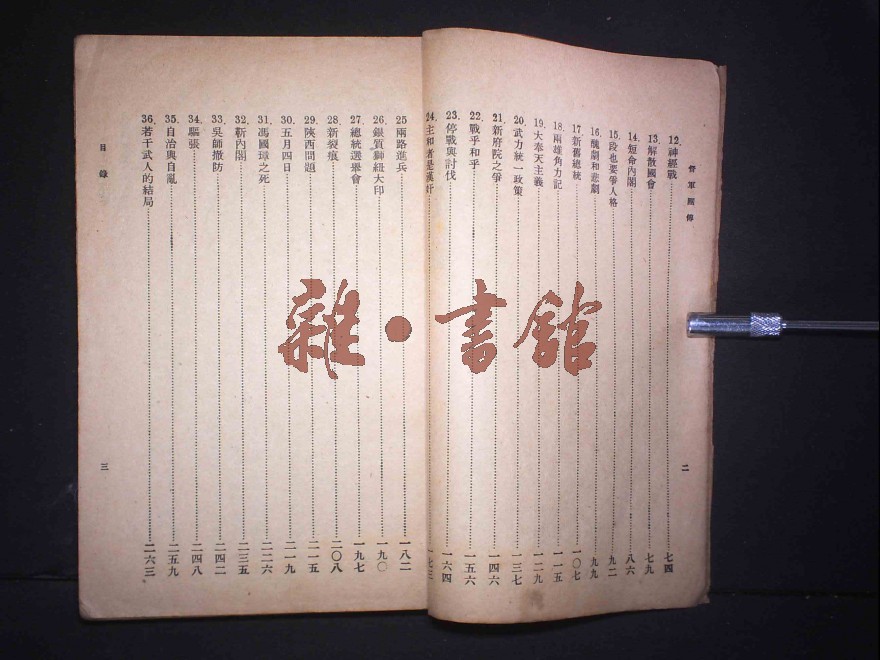 督軍團傳
12. 神經戰 七四
13. 解散國會 七九
14. 短命內閣 八六
15. 段也要爭人格 九二
16. 醜劇和悲劇 九九
17. 新舊總統 一〇七
18. 兩雄角力記 一一五
19. 大奉天主義 一二九
20. 武力統一政策 一三七
21. 新府院之爭 一四六
22. 戰乎和乎 一五六
23. 停戰與討伐 一六四
24. 主和者是漢奸 一七三
二
25 兩路進兵 一八二
26. 銀質獅紐大印 一九〇
27. 總統選舉會 一九七
28. 新裂痕 二〇八
29. 陝西問題 二一五
30. 五月四日 二一九
31. 馮國璋之死 二二六
32. 靳內閣 二三五
33. 吳師撤防 二四二
34. 驅張 二四八
35. 自治與自亂 二五九
36. 若干武人的結局 二六三
目錄
三
雜·書館